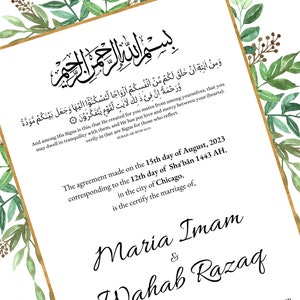 بسم الله الرحمن الرحيم
وَمِنْ آيَاتِهِ أَنْ خَلَقَ لَكُم مِّنْ أَنفُسِكُمْ أَزْوَاجًا لِّتَسْكُنُوا إِلَيْهَا وَجَعَلَ بَيْنَكُم مَّوَدَّةً
وَرَحْمَةً إِنَّ فِي ذَٰلِكَ لَآيَاتٍ لِّقَوْمٍ يَتَفَكَّرُونَ
And among His Signs is this, that He created for you mates from among yourselves, that you
may dwell in tranquility with them, and He has put love and mercy between your (hearts);
verily in that are Signs for those who reflect.
The agreement made on the 15th day of August, 2023
corresponding to the 12th day of Sha'bān 1445 AH,
in the city of Chicago,
is the certify the marriage of,
Maria Imam
&
Wahab Razaq